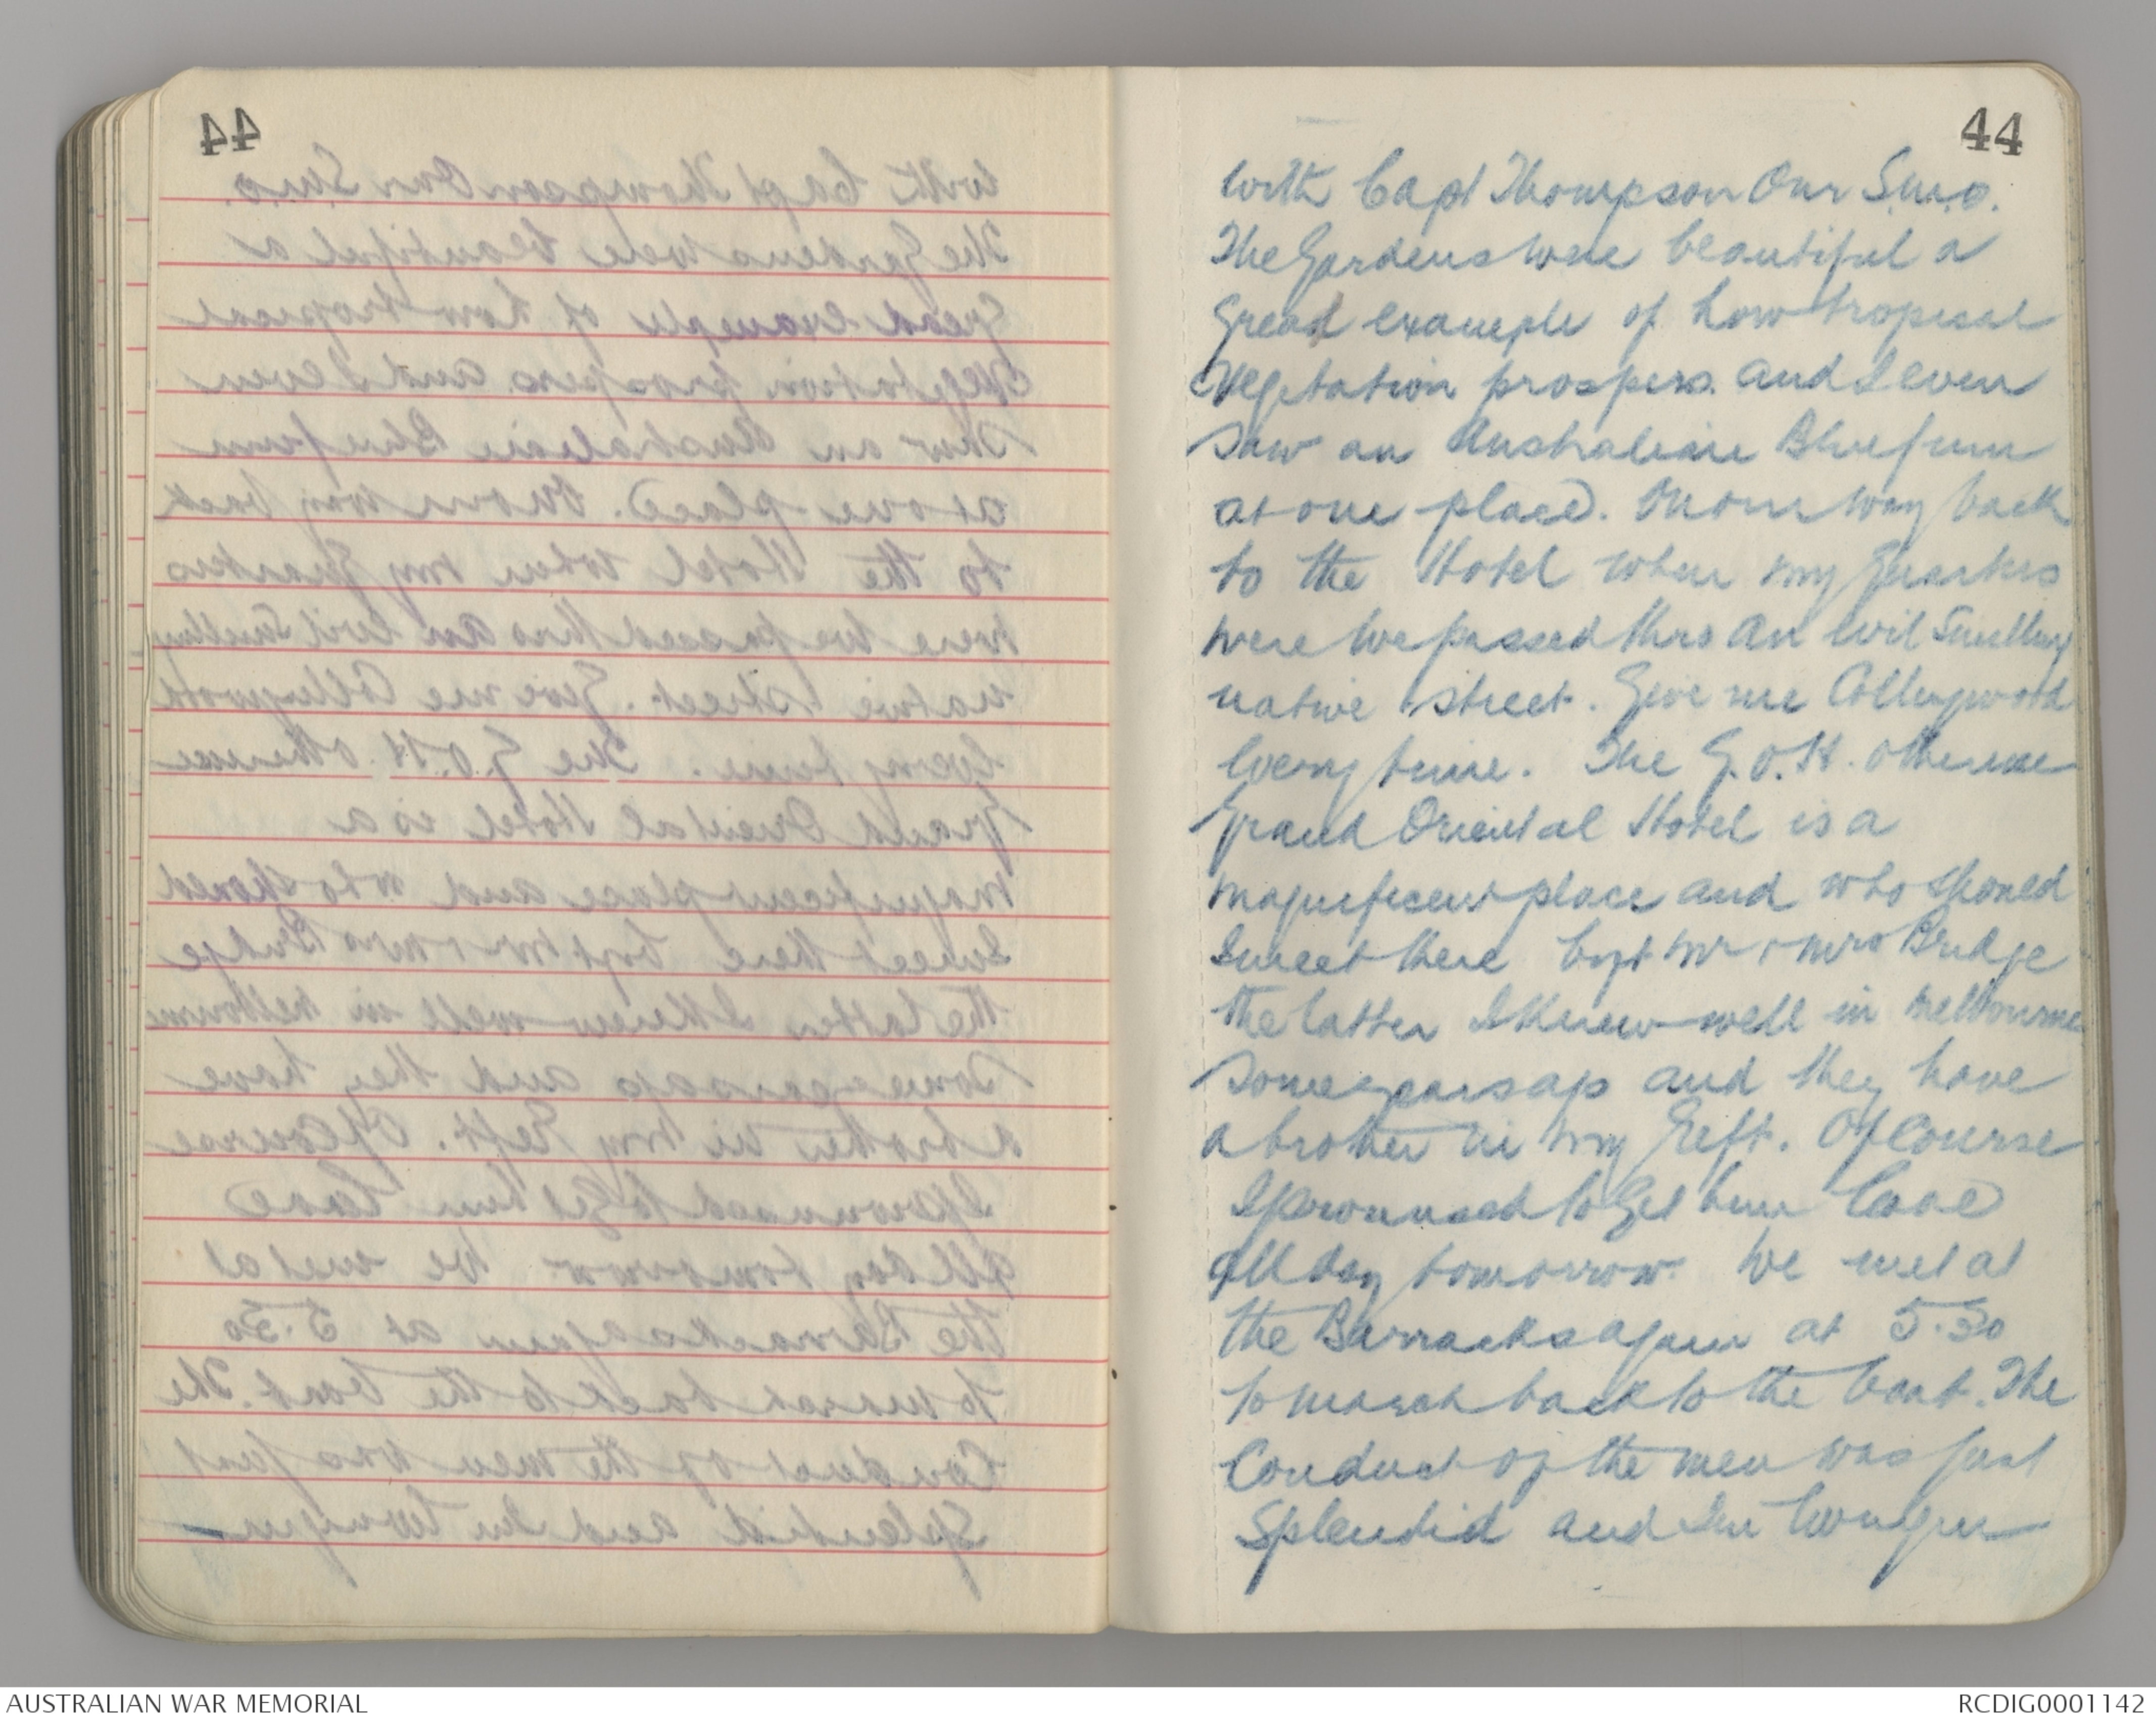 44
44
with Capt Thompson Our S.M.O.
The Gardens were beautiful a
great example of how tropical
vegetation prospers. and I even
saw an Australian Bluegum
at one place. On our way back
to the Hotel where my Quarters
were we passed thro an evil smelling
native street. Give me Collingwood
every time. The G.O.H. otherwise
Grand Oriental Hotel is a
magnificent place and who should
I meet there but Mr & Mrs Bridge
the latter I knew well in Melbourne
some years ago and they have
a brother in my Regt. Of course
I promised to get him leave
all day tomorrow. We met at
the Barracks again at 5.30
to march back to the boat. The
Conduct of the men was just
Splendid and Im
AUSTRALIAN WAR MEMORIAL
RCDIG0001142